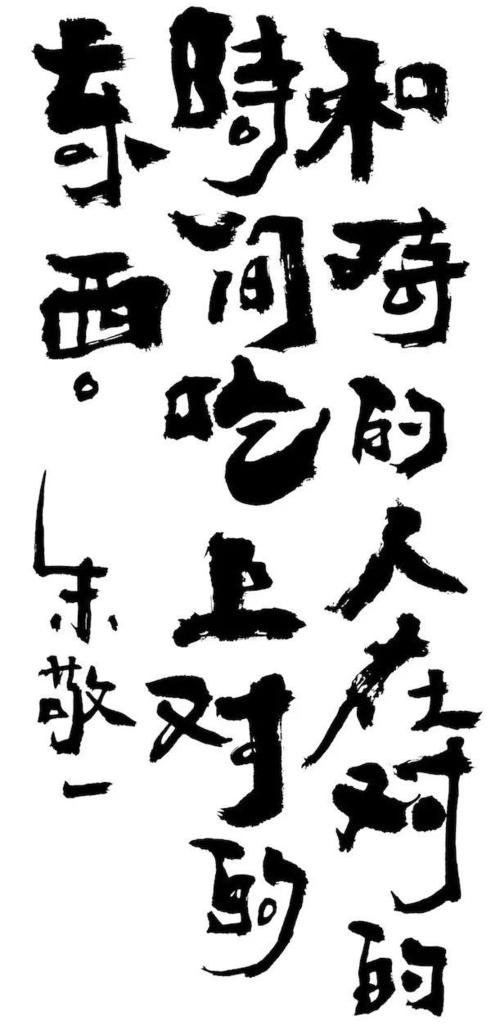 和对的人在对的
時间吃上对的
东西。
朱敬一